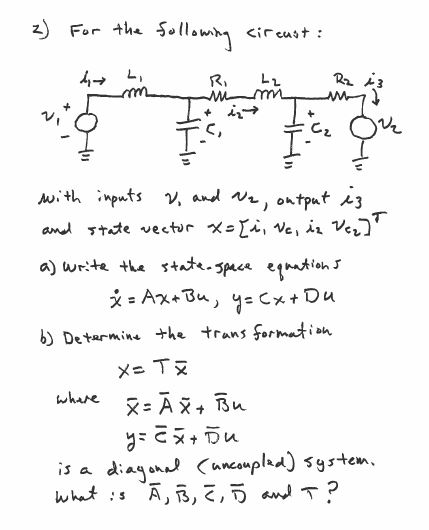 2) For the following circuit:
i₁→ L₁ R₁ L₂ R₂ i₃
v₁ + - + C₁ - i₂→ + C₂ - v₂
with inputs v₁ and v₂, output i₃
and state vector x=[i₁ v_c₁ i₂ v_c₂]ᵀ
a) Write the state-space equations
ẋ = Ax+Bu, y=Cx+Du
b) Determine the transformation
x = T x̄
where x̄ = Ā x̄ + B̄u
y = C̄ x̄ + D̄u
is a diagonal (uncoupled) system.
What is Ā, B̄, C̄, D̄ and T?